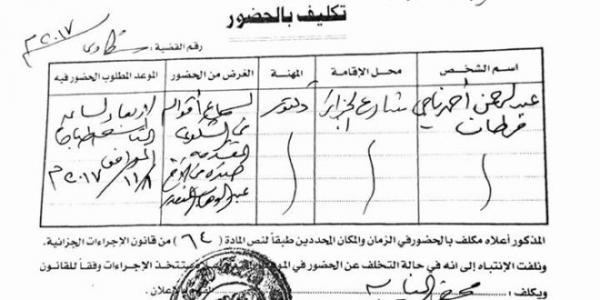 تكليف بالحضور
رقم القضية: شكاوى ٢٠١٧م
اسم الشخص
محل الإقامة
المهنة
الغرض من الحضور
الموعد المطلوب الحضور فيه
عبدالرحمن أحمد ناجي
فرحان
شارع الجزائر
دكتور
لسماع أقوالكم
في الشكوى
المقدمة
ضدكم من الأخ
الأربعاء الساعة
التاسعة صباحا
الموافق
١١/٨/٢٠١٧م
المذكور أعلاه مكلف بالحضور في الزمان والمكان المحددين طبقاً لنص المادة (٦٤) من قانون الإجراءات الجزائية.
ونلفت الإنتباه إلى انه في حالة التخلف عن الحضور في ستتخذ الإجراءات وفقاً للقانون
ويكلف: